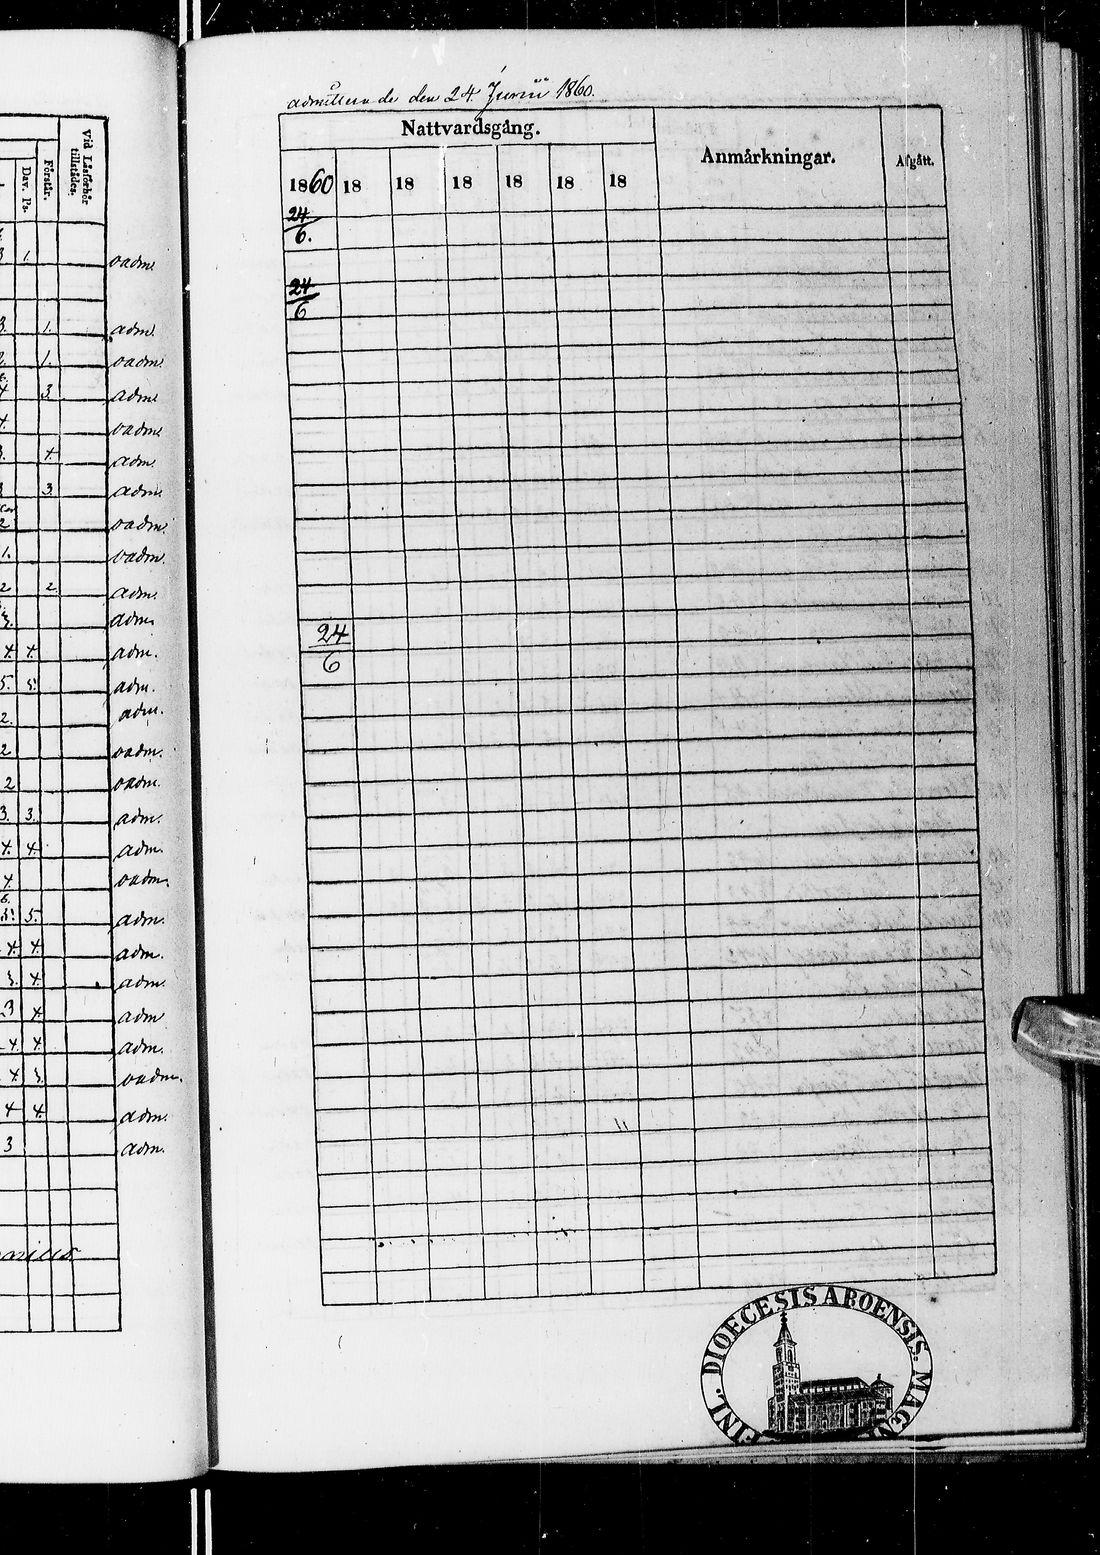 Vid Läsförhör tillstädes.
Förstår.
Dav. Ps.
3 1. oadm.
3. 1. adm.
2. 1. oadm.
4 3. adm.
4. oadm.
3. 4. adm.
3 3. adm.
2 oadm.
1. oadm.
2 2. adm.
3. adm.
4. 4. adm.
5. 5. adm.
2. adm.
2 oadm.
2 oadm.
3. 3. adm.
4. 4. adm.
4. oadm.
6.
5. 5. adm.
4. 4. adm.
3. 4. adm.
3 4 adm
4. 4. adm.
4. 3. oadm.
4 4. adm.
3 adm.
admitterade den 24 Junii 1860.
Nattvardsgång. Anmärkningar. Afgått.
1860 18 18 18 18 18 18
24
6.
24
6
24
6
FINL. DIOECESIS ABOENSIS. MAGNI